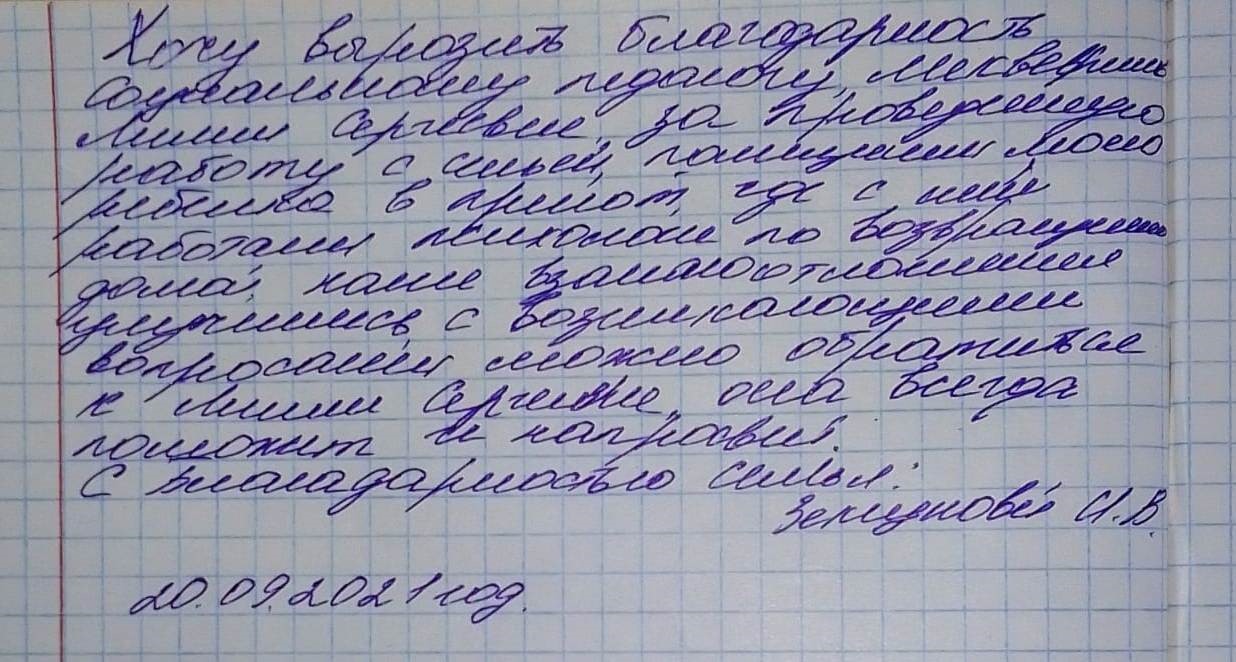 Хочу вырозить благодарность
социальному педагогу,
Лилии Сергеевне, за проведенную
работу с семьей, помещении моего
ребенка в приют, где с ним
работали психологи по возвращении
дома, наше взаимоотношения
улучшились, с возникающими
вопросами можно обратиться
к Лилии Сергеевне, она всегда
поможит и напровит.
С благадарностью семья:
И.В.
20.09.2021 год.